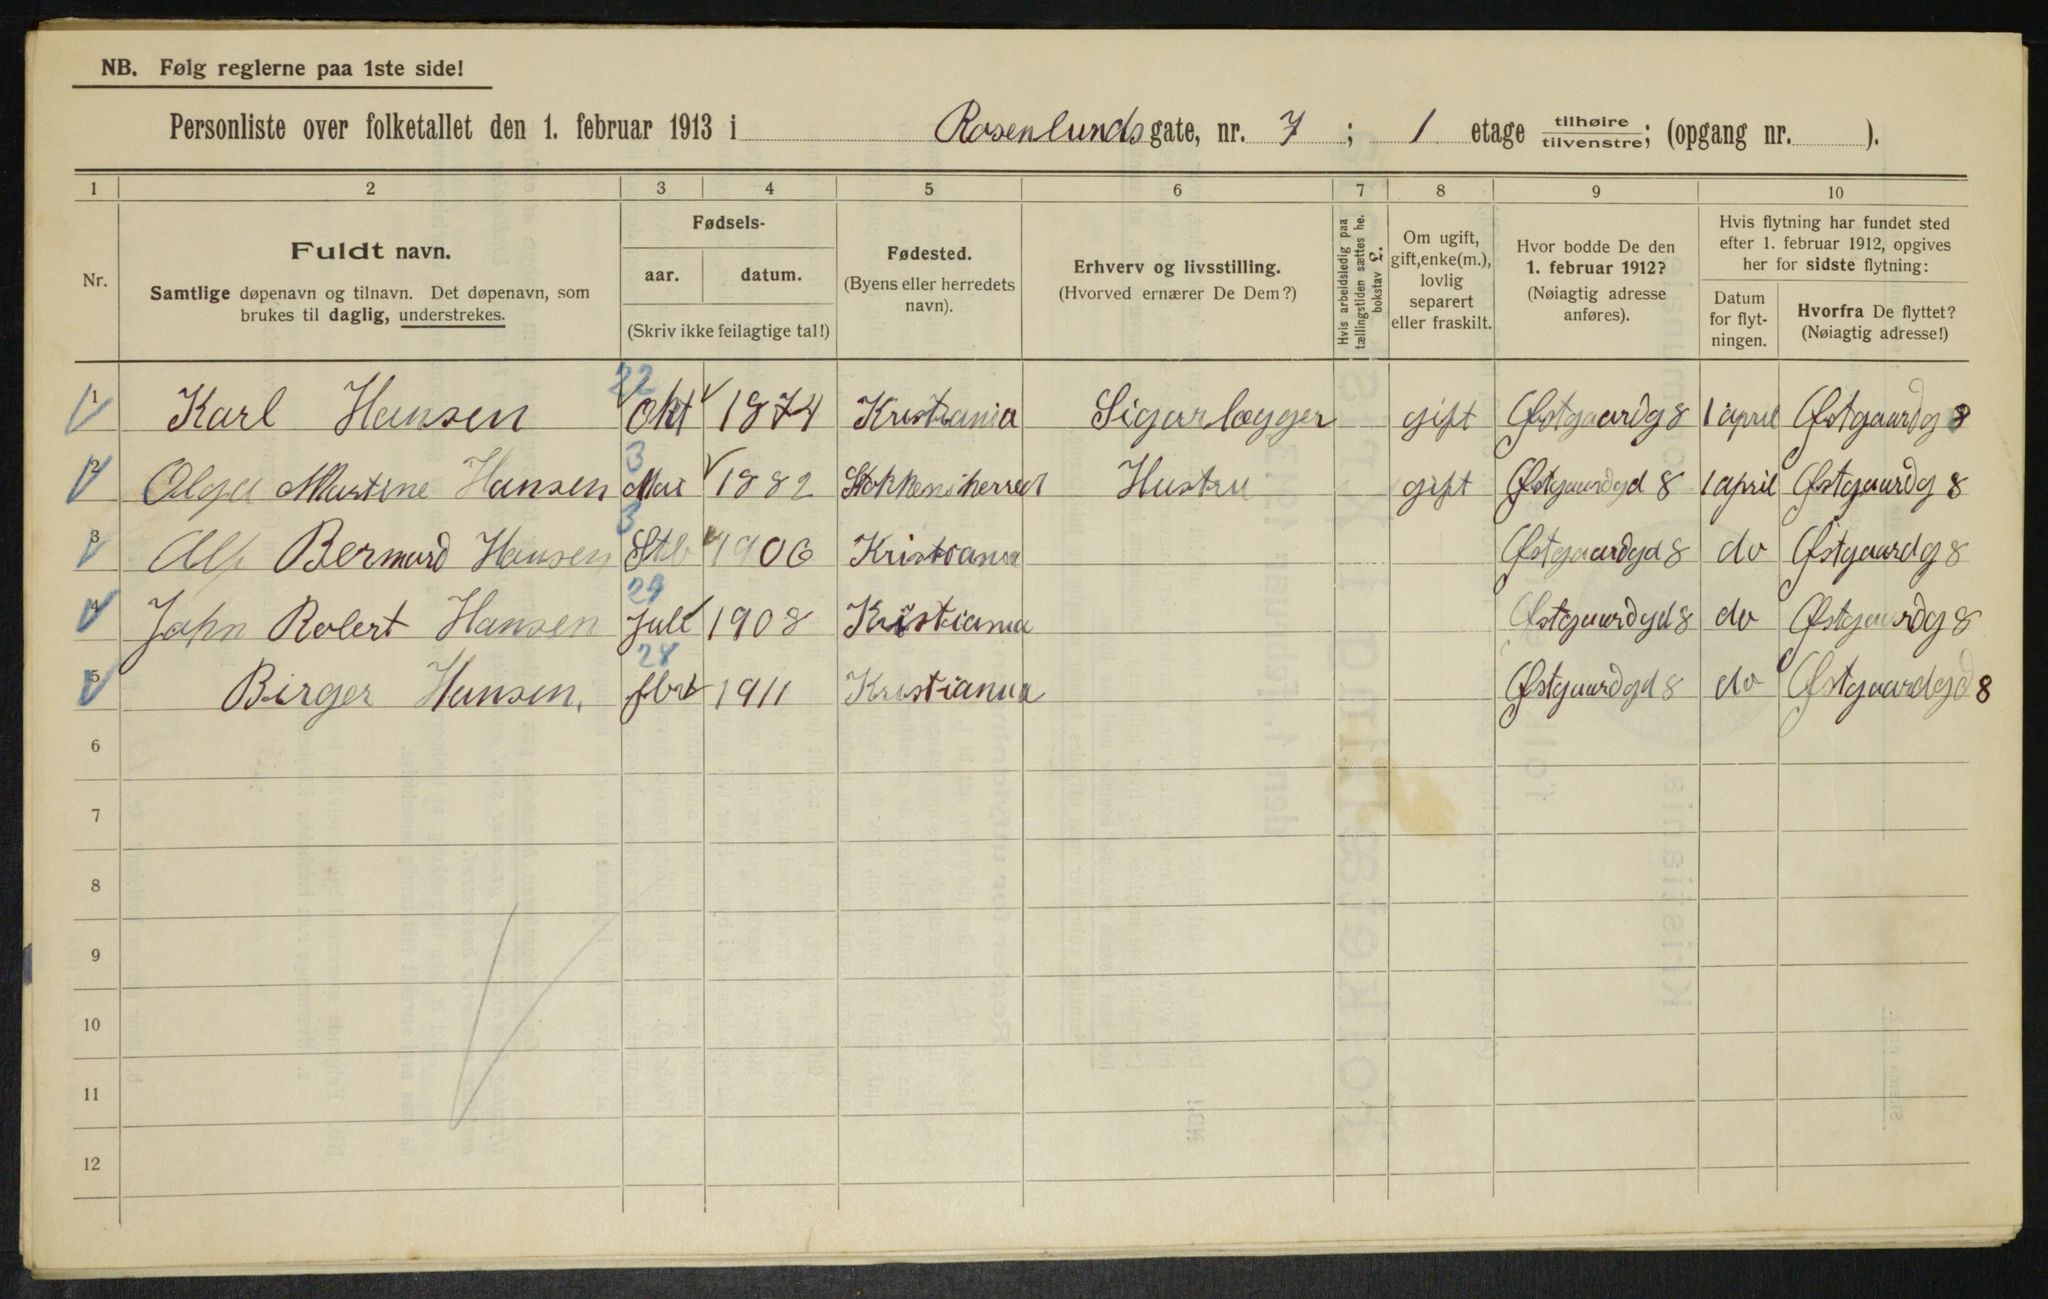 NB. Følg reglerne paa 1ste side!
Personliste over folketallet den 1. februar 1913 i Rosenlundsgate, nr. 7; 1 etage tilhøire/tilvenstre; (opgang nr. ).
1 2 3 4 5 6 7 8 9 10
Nr.
Fuldt navn.
Samtlige døpenavn og tilnavn. Det døpenavn, som
brukes til daglig, understrekes.
Fødsels-
aar. datum.
(Skriv ikke feilagtige tal!)
Fødested.
(Byens eller herredets
navn).
Erhverv og livsstilling.
(Hvorved ernærer De Dem?)
Hvis arbeidsledig paa
tællingstiden sættes he.
bokstav L.
Om ugift,
gift, enke(m.),
lovlig
separert
eller fraskilt.
Hvor bodde De den
1. februar 1912?
(Nøiagtig adresse
anføres).
Hvis flytning har fundet sted
efter 1. februar 1912, opgives
her for sidste flytning:
Datum
for flyt-
ningen.
Hvorfra De flyttet?
(Nøiagtig adresse!)
1 Karl Hansen 22 Okt 1874 Kristiania Sigarlægger gift Østgaardg 8 1 april Østgaardg 8
2 Olga Martine Hansen 3 Mai 1882 Stokkeniherred Hustru gift Østgaardgd 8 1 april Østgaardg 8
3 Alf Bernard Hansen 3 1906 Kristiania Østgaardgd 8 do Østgaardg 8
4 John Robert Hansen 29 Juli 1908 Kristiania Østgaardgd 8 do Østgaardg 8
5 Birger Hansen. 28 fbr 1911 Kristiania Østgaardgd 8 do Østgaardgd 8
6
7
8
9
10
11
12